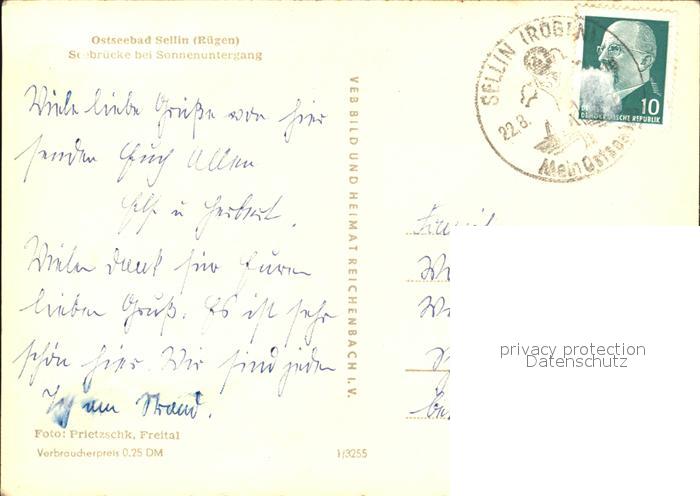 Ostseebad Sellin (Rügen)
Seebrücke bei Sonnenuntergang
Viele liebe Grüße von hier
senden Euch Allen
u Herbert.
Vielen Dank für Euren
lieben Gruß. Es ist sehr
schön hier. Wir sind jeden
Tag am Strand.
Foto: Prietzschk, Freital
Verbraucherpreis 0,25 DM
1/3255
VEB BILD UND HEIMAT REICHENBACH I. V.
SELLIN (RÜGEN)
22.8.
Mein Ostsee
10
DEMOKRATISCHE REPUBLIK
privacy protection
Datenschutz